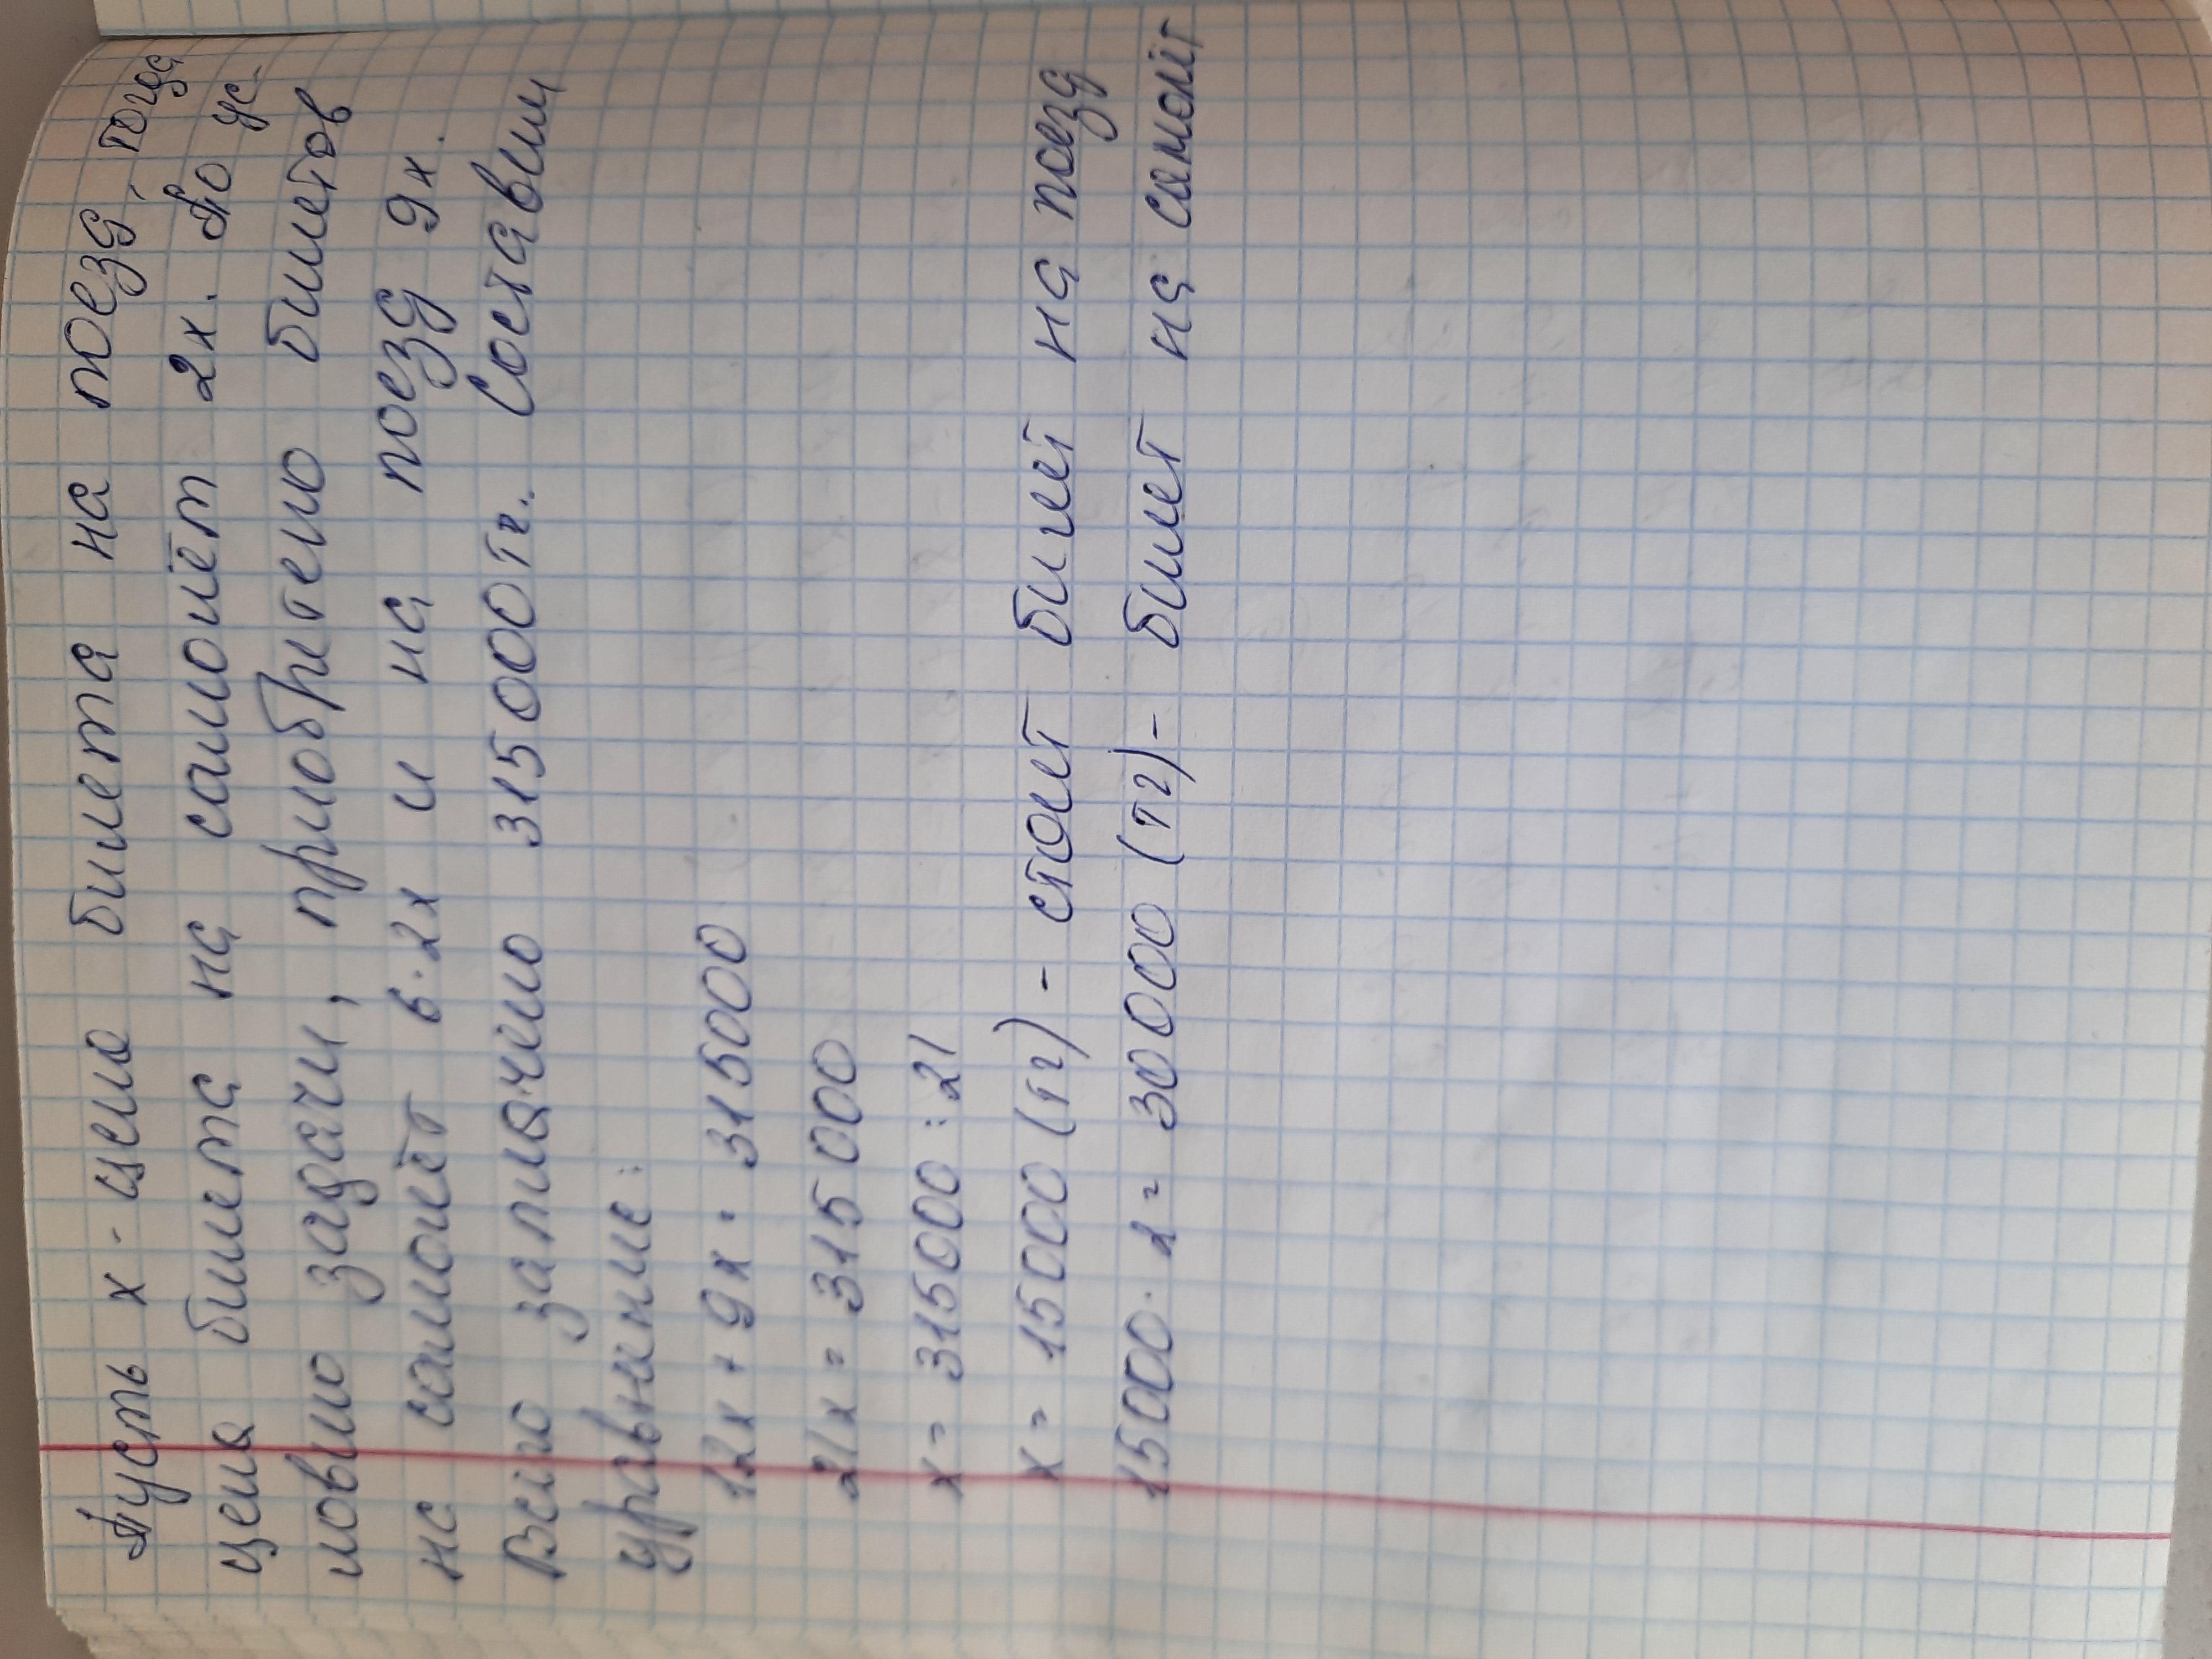 Пусть х - цена билета на поезд, тогда
цена билета на самолёт 2х. По ус-
ловию задачи, приобретено билетов
на самолёт 6·2х и на поезд 9х.
Всего заплачено 315000тг. Составим
уравнение:
12х + 9х = 315000
21х = 315000
х = 315000 : 21
х = 15000 (тг) - стоит билет на поезд
15000 · 2 = 30000 (тг) - билет на самолёт